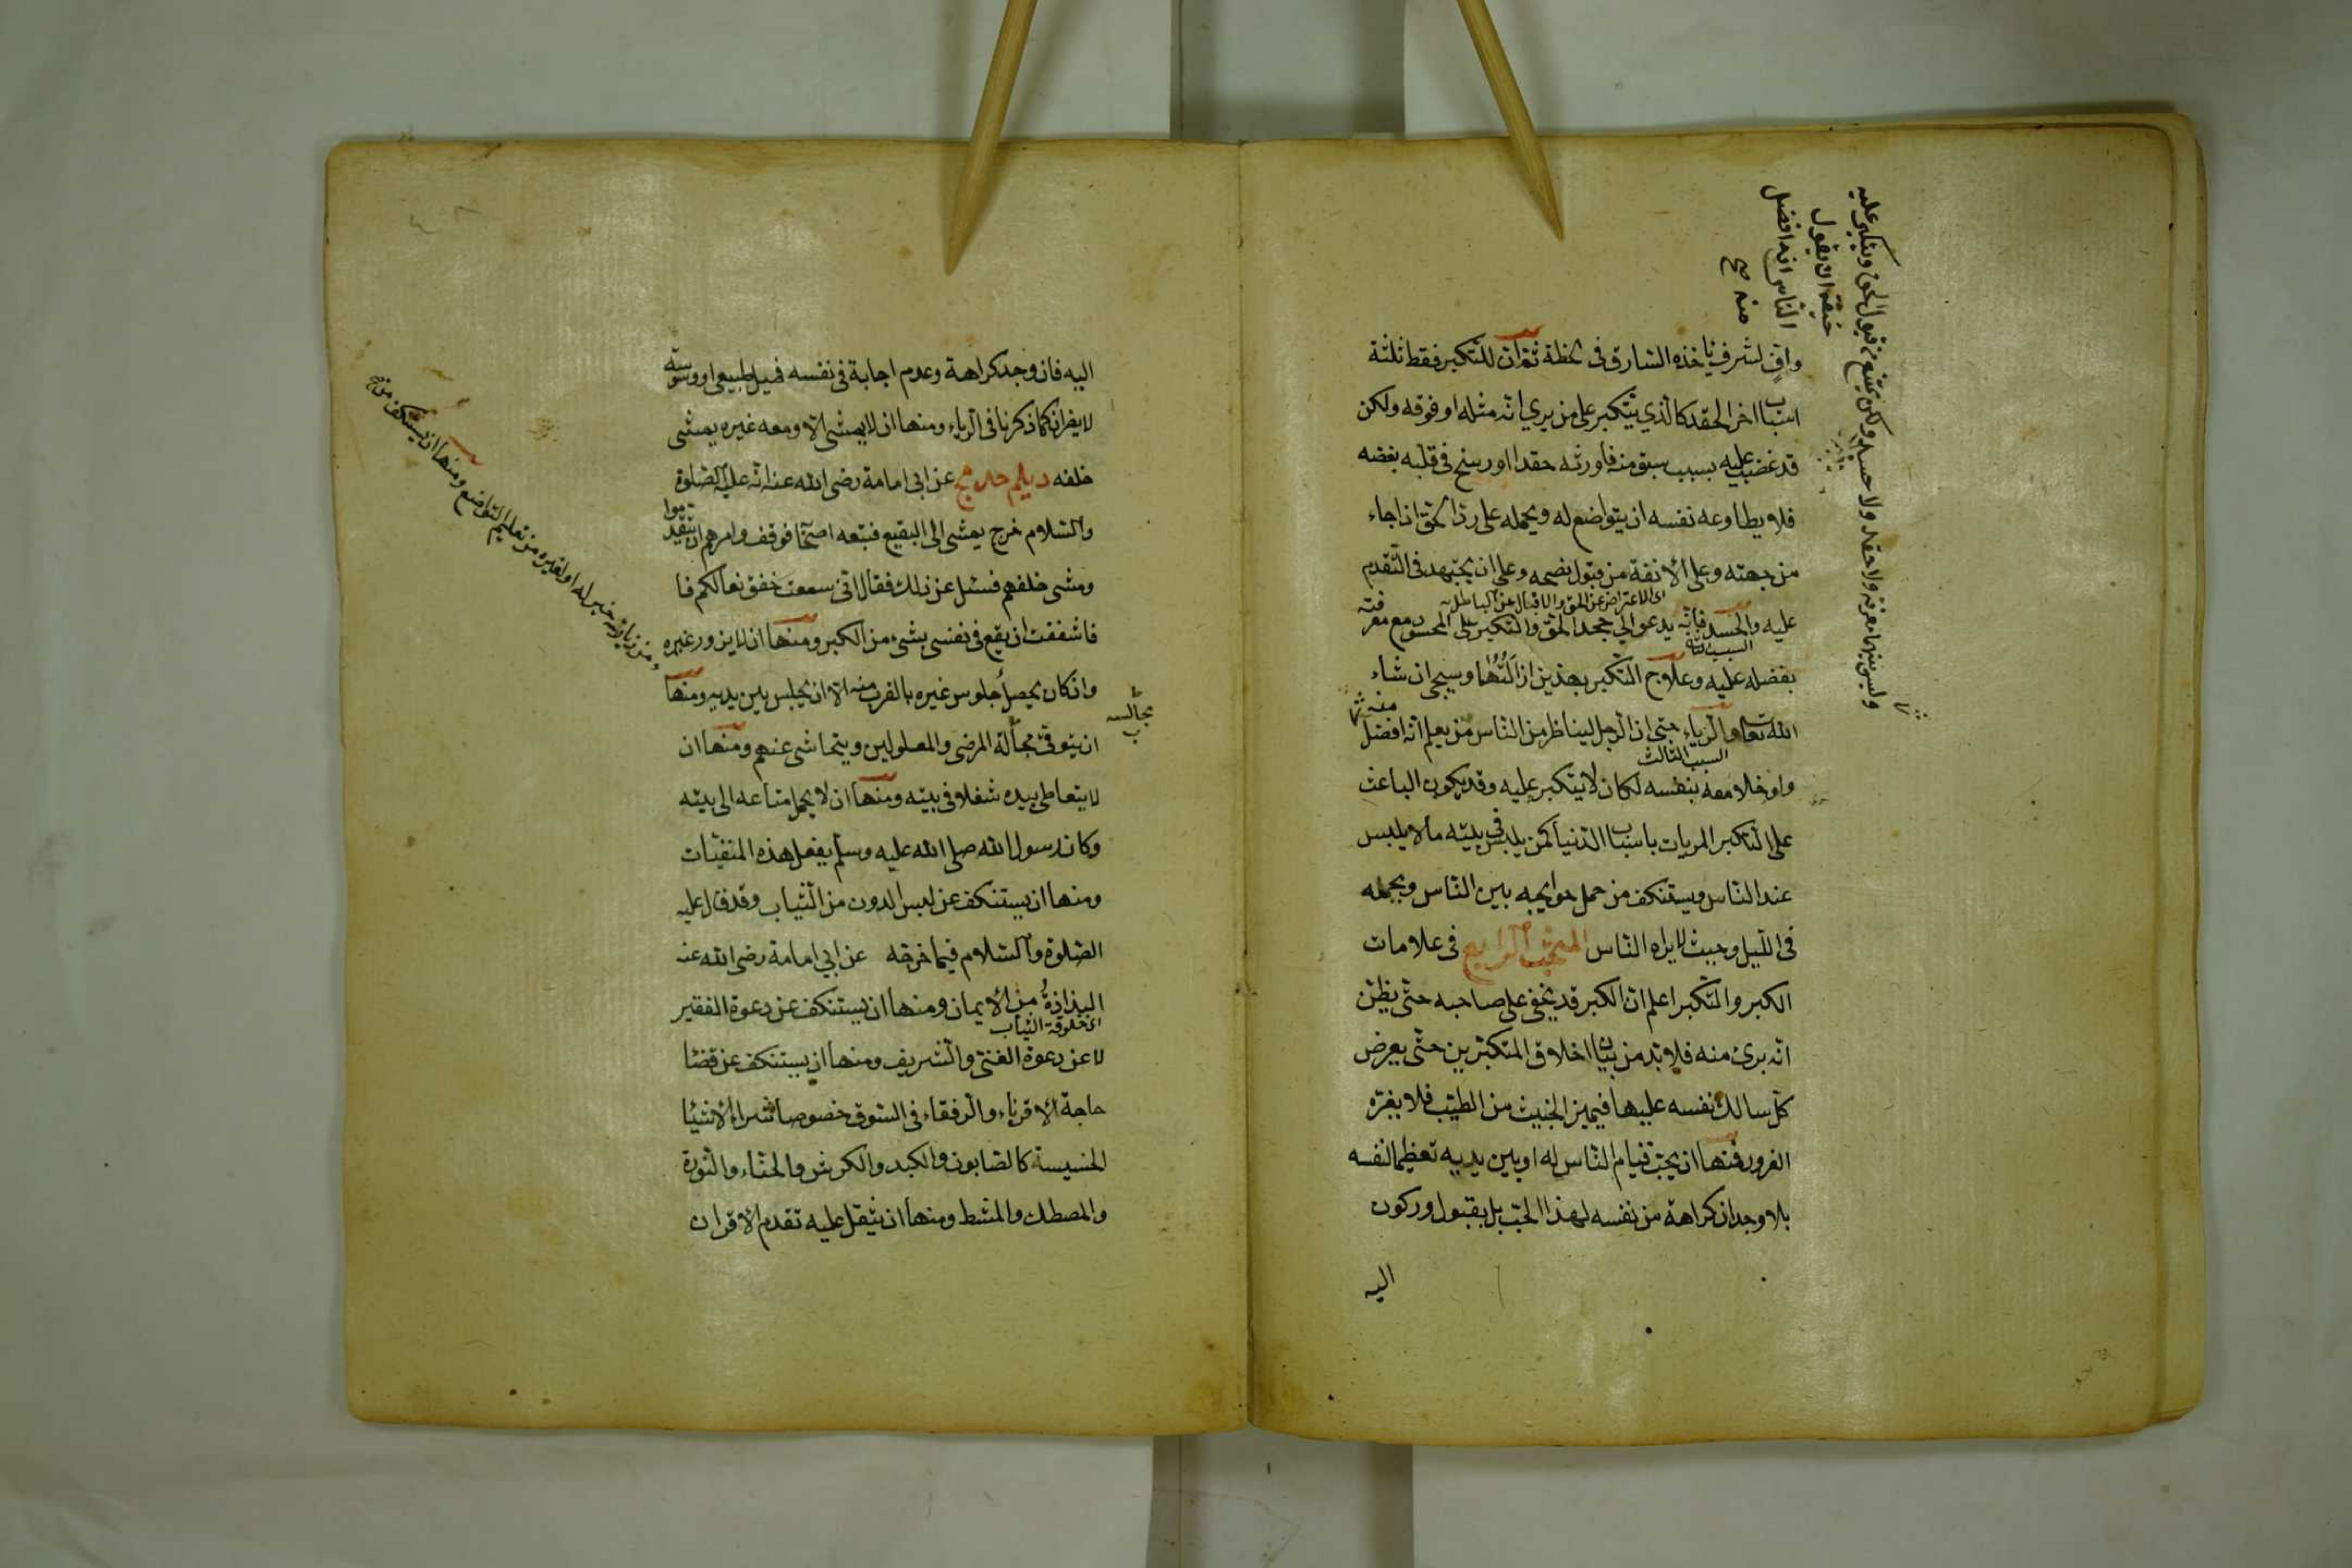 وای لشرف ياخذه السارق فى لحظة ثم ان للتكبر فقط ثلثة
اسباب اخر الحقد كالذي يتكبر على من يرى انه مثله او فوقه ولكن
قد غضب عليه بسبب سبق منه فاورثه حقدا ورسخ فى قلبه بغضه
فلا يطاوعه نفسه ان يتواضع له ويحمله على رد الحق اذا جاء
من جهته وعلى الانفة من قبول نصحه وعلى ان يجتهد فى التقدم
اى الاعراض عن الحق والاقبال عن الباطل
عليه والحسد فانه يدعو الى جحد الحق والتكبر على المحسود مع معرفته
السبب الثانى
بفضله عليه وعلاج التكبر بهذين ازالتهما وسيجى ان شاء
الله تعالى والرياء حتى ان الرجل ليناظر من الناس من يعلم انه افضل منه
السبب الثالث
ولو خلا معه بنفسه لكان لا يتكبر عليه وقد يكون الباعث
على التكبر المريات باسباب الدنيا كمن يلبس فى بيته ما لا يلبس
عند الناس ويستنكف من حمل حوايجه بين الناس ويحمله
فى الليل وحيث لا يراه الناس المبحث الرابع فى علامات
الكبر والتكبر اعلم ان الكبر قد يخفى على صاحبه حتى يظن
انه برئ منه فلا بد من بيان اخلاق المتكبرين حتى يعرض
كل سالك نفسه عليها فيميز الخبيث من الطيب فلا يغره
الغرور فمنها ان يحب قيام الناس له او بين يديه تعظيما لنفسه
بلا وجدان كراهة من نفسه لهذا الحب بل بقبول وركون
اليه
وليس بينهما معرفة ولا حقد ولا حسد ولكن يمتنع من قبول الحق ويتكبر عليه
خيفة ان يقول
الناس انه افضل
منه صح
اليه فان وجد كراهة وعدم اجابة فى نفسه فميل طبيعى او وسوسة
لا يضران كما ذكرنا فى الرياء ومنها ان لا يمشى الا ومعه غيره يمشى
خلفه ديلم عن ابى امامة رضى الله عنه انه عليه الصلوة
والسلام خرج يمشى الى البقيع فتبعه اصحابه فوقف وامرهم ان يتقدموا
ومشى خلفهم فسئل عن ذلك فقال انى سمعت خفق نعالكم فا
فاشفقت ان يقع فى نفسى بشىء من الكبر ومنها ان لا يزور غيره
وان كان يحصل جلوس غيره بالقرب منه الا ان يجلس بين يديه ومنها
مجالسه
ان يتوقى مجالة المرضى والمعلولين ويتحاشى عنهم ومنها ان
لا يتعاطى بيده شغلا فى بيته ومنها ان لا يحمل متاعه الى بيته
وكان رسول الله صلى الله عليه وسلم يفعل هذه المنفيات
ومنها ان يستنكف عن لبس الدون من الثياب وقد قال عليه
الصلوة والسلام فيما خرجه عن ابى امامة رضى الله عنه
البذاذة من الايمان ومنها ان يستنكف عن دعوة الفقير
اى خلوقة الثياب
لا عن دعوة الغنى والشريف ومنها ان يستنكف عن قضا
حاجة الاقرباء والرفقاء فى السوق خصوصا شراء الاشيا
الخسيسة كالصابون والكبد والكرش والحناء والنورة
والمصطك والمشط ومنها ان يثقل عليه تقدم الاقران
خير له او لغيره من تعليم التواضع ومنها ان يستنكف من